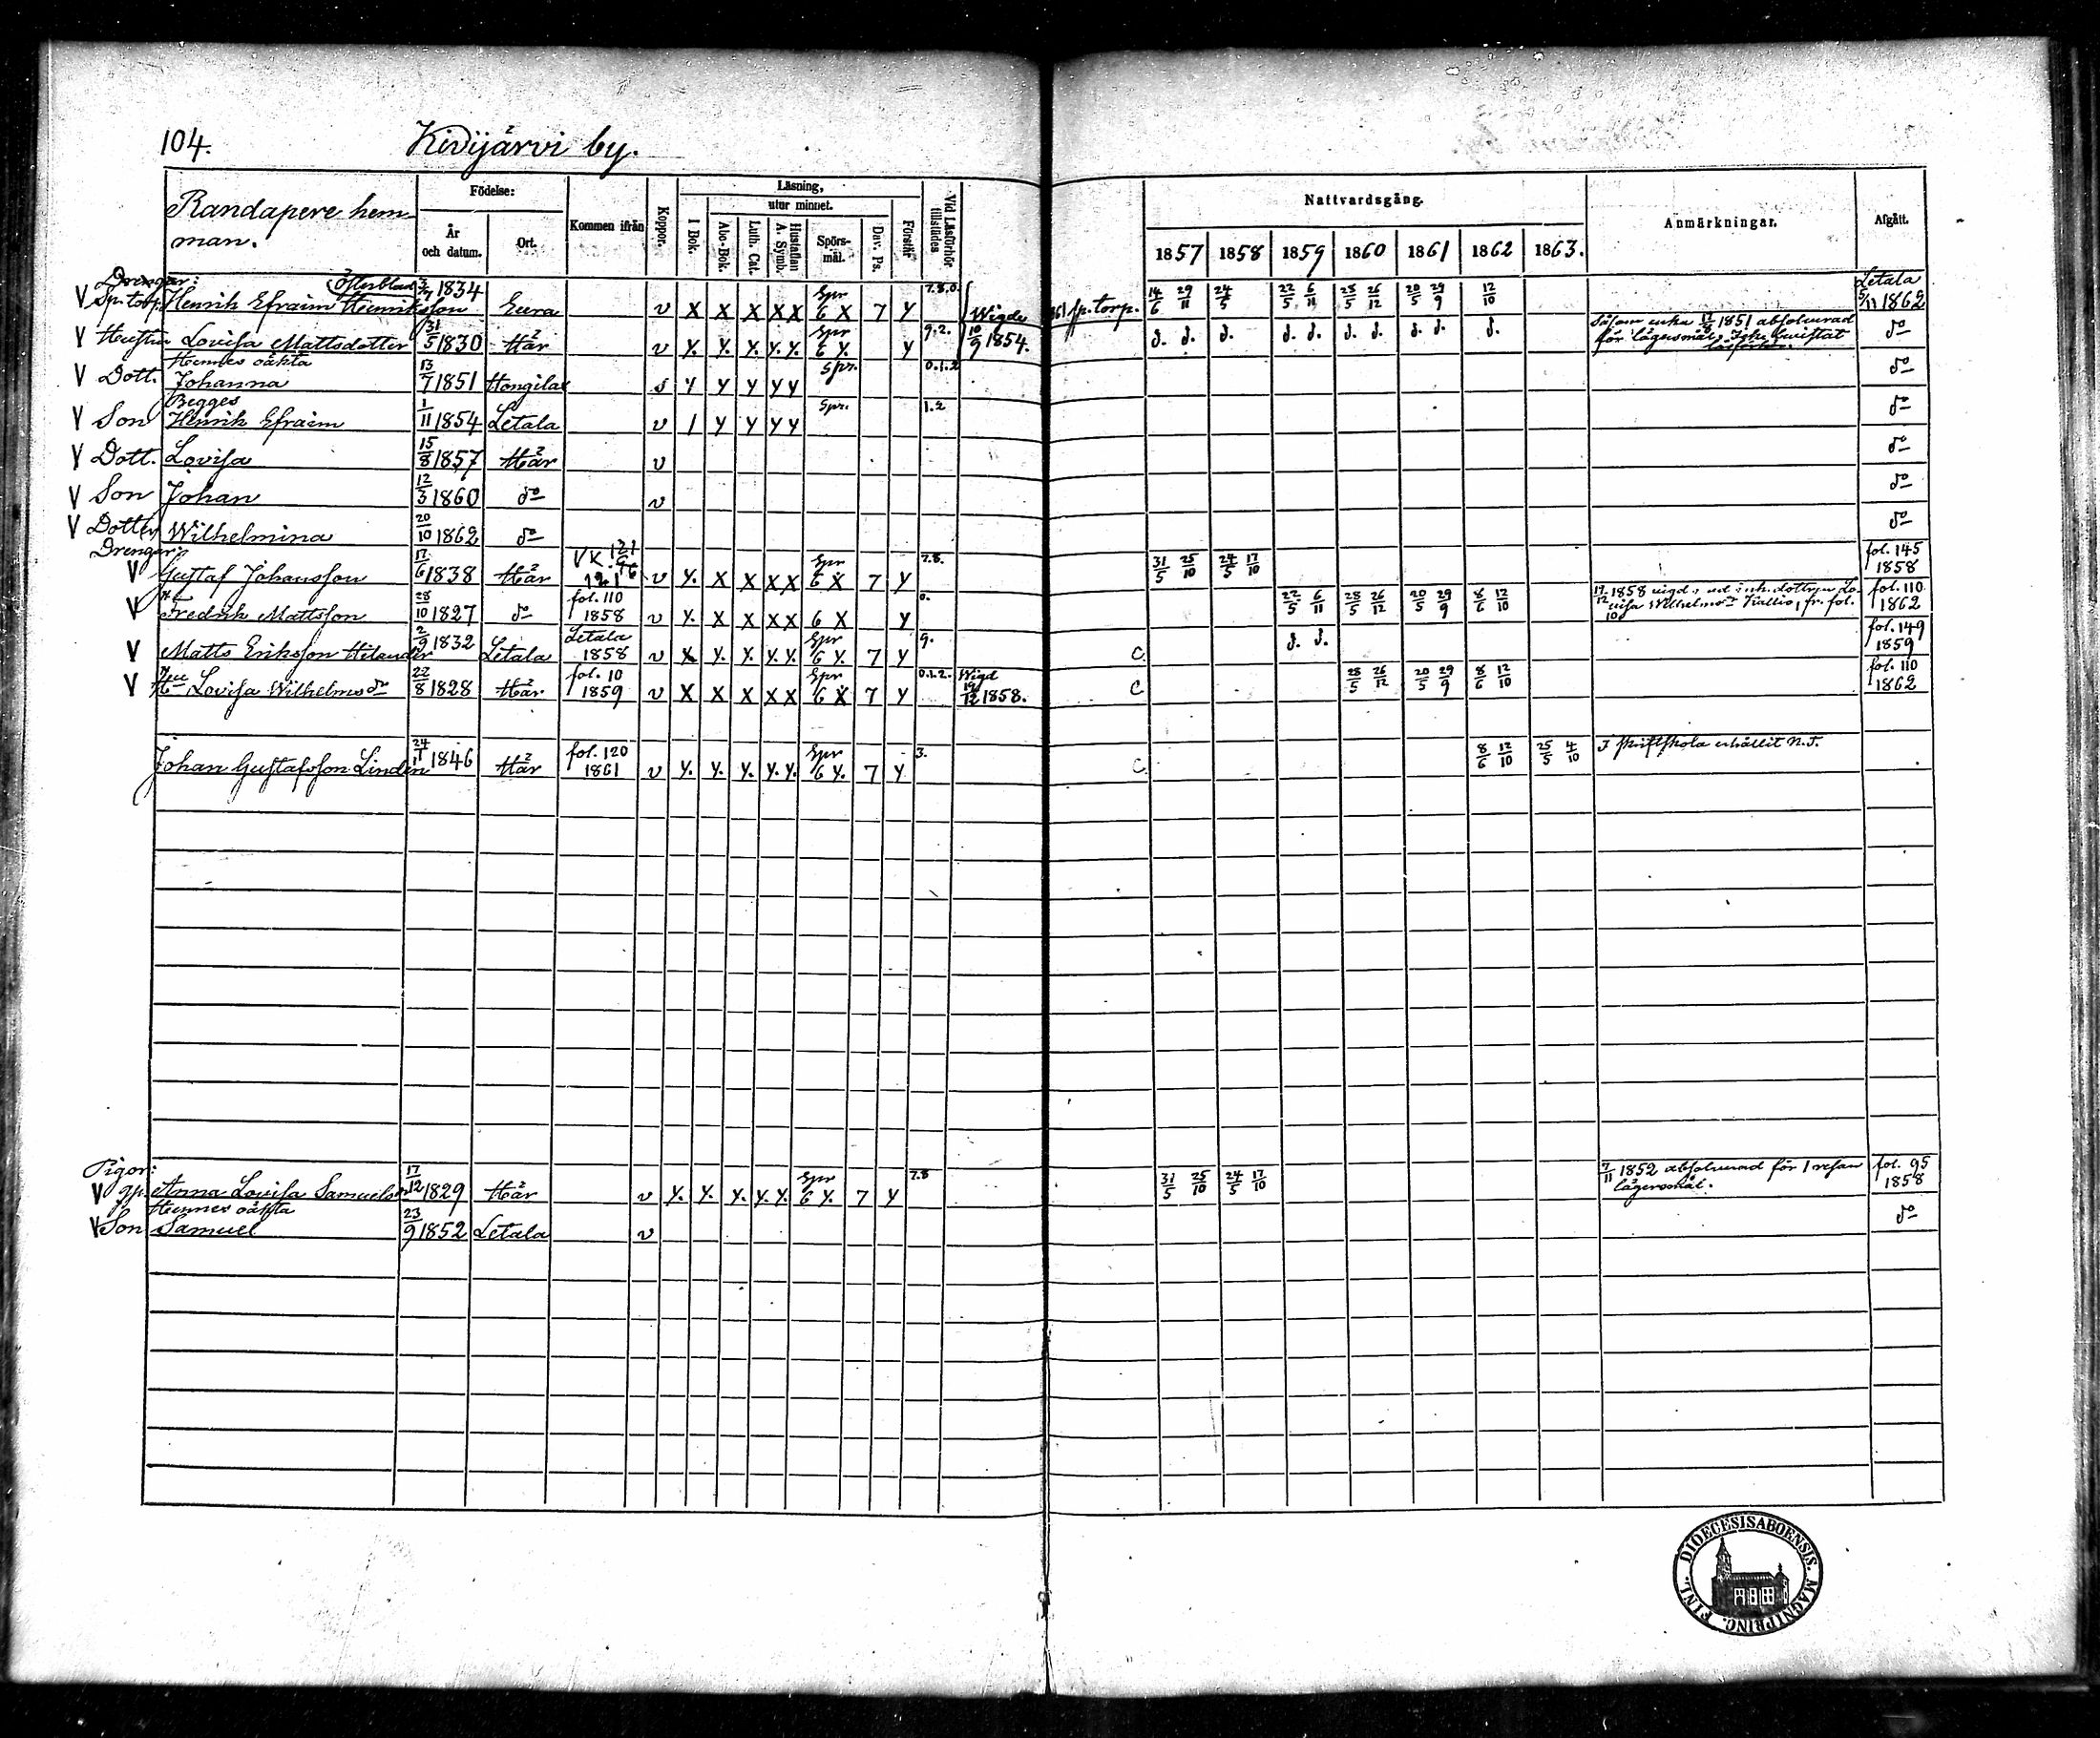 104.
Kivijärvi by.
Randapere hem-
man.
Födelse:
År
och datum.
Ort.
Kommen ifrån
Koppor.
Läsning,
utur minnet.
I Bok.
Abc-Bok.
Luth. Cat.
Hustaflan
A. Symb.
Spörs-
mål.
Dav. Ps.
Förstår
Vid Läsförhör
tillstädes
Nattvardsgång.
1857 1858 1859 1860 1861 1862 1863.
Anmärkningar.
Afgått.
Drengar:
V Sp. torp. Henrik Efraim Henriksson Österblad 1834 Eura v X X X X X Spr 6 X 7 Y 7.8.0. Wigde sp. torp. 14/6 29/11 24/5 22/5 6/11 28/5 26/12 20/5 29/9 12/10 Letala 5/11 1862
V Hustru Lovisa Mattsdotter 31/5 1830 Här v Y. Y. Y. Y. Y. Spr 6 Y. Y 9.2. 10/9 1854. d. d. d. d. d. d. d. d. d. d. Såsom enka 1851 absolverad do
för lägersmål. Icke bevistat
läsförhör.
V Dott. Hennes oäkta
Johanna 13/7 1851 Hongilax s Y Y Y Y Y Spr. 0.1.2 do
Begges
V Son Henrik Efraim 1/11 1854 Letala v / Y Y Y Y Spr. 1.2 do
V Dott. Lovisa 15/8 1857 Här v do
V Son Johan 12/3 1860 do v do
V Dotter Wilhelmina 20/10 1862 do do
Drengar:
V Gustaf Johansson 17/6 1838 Här v Y. X X X X Spr 6 X 7 Y 7.8. 31/5 25/10 24/5 17/10 fol. 145 1858
V Fredrik Mattsson 28/10 1827 do fol. 110 1858 v Y. X X X X 6 X Y 0. 22/5 6/11 28/5 26/12 20/5 29/9 8/6 12/10 1858 vigd v. ud inh. dottren Lo- fol. 110 1862
visa Wilhelmsdr Kallio, fr. fol.
10
V Matts Eriksson Helander 2/9 1832 Letala Letala 1858 v X Y. Y. Y. Y. Spr 6 Y. 7 Y 9. C. d. d. fol. 149 1859
V Hu Lovisa Wilhelmsdr 22/8 1828 Här fol. 10 1859 v X X X X X Spr 6 X 7 Y 0.1.2. Wigd 19/12 1858. C 28/5 26/12 20/5 29/9 8/6 12/10 fol. 110 1862
Johan Gustafsson Lindén 24/11 1846 Här fol. 120 1861 v Y. Y. Y. Y. Y. Spr 6 Y. 7 Y 3. C. 8/6 12/10 25/5 4/10 I skriftskola erhållit N.T.
Pigor:
V Anna Lovisa Samuelsdr 17/12 1829 Här v Y. Y. Y. Y. Y. Spr 6 Y. 7 Y 7.8 31/5 25/10 24/5 17/10 7/11 1852 absolverad för 1 resan fol. 95 1858
lägersmål.
Hennes oäkta
V Son Samuel 23/9 1852 Letala v do
DIOECESIS ABOENSIS. MAGNI PRINC. FINL.